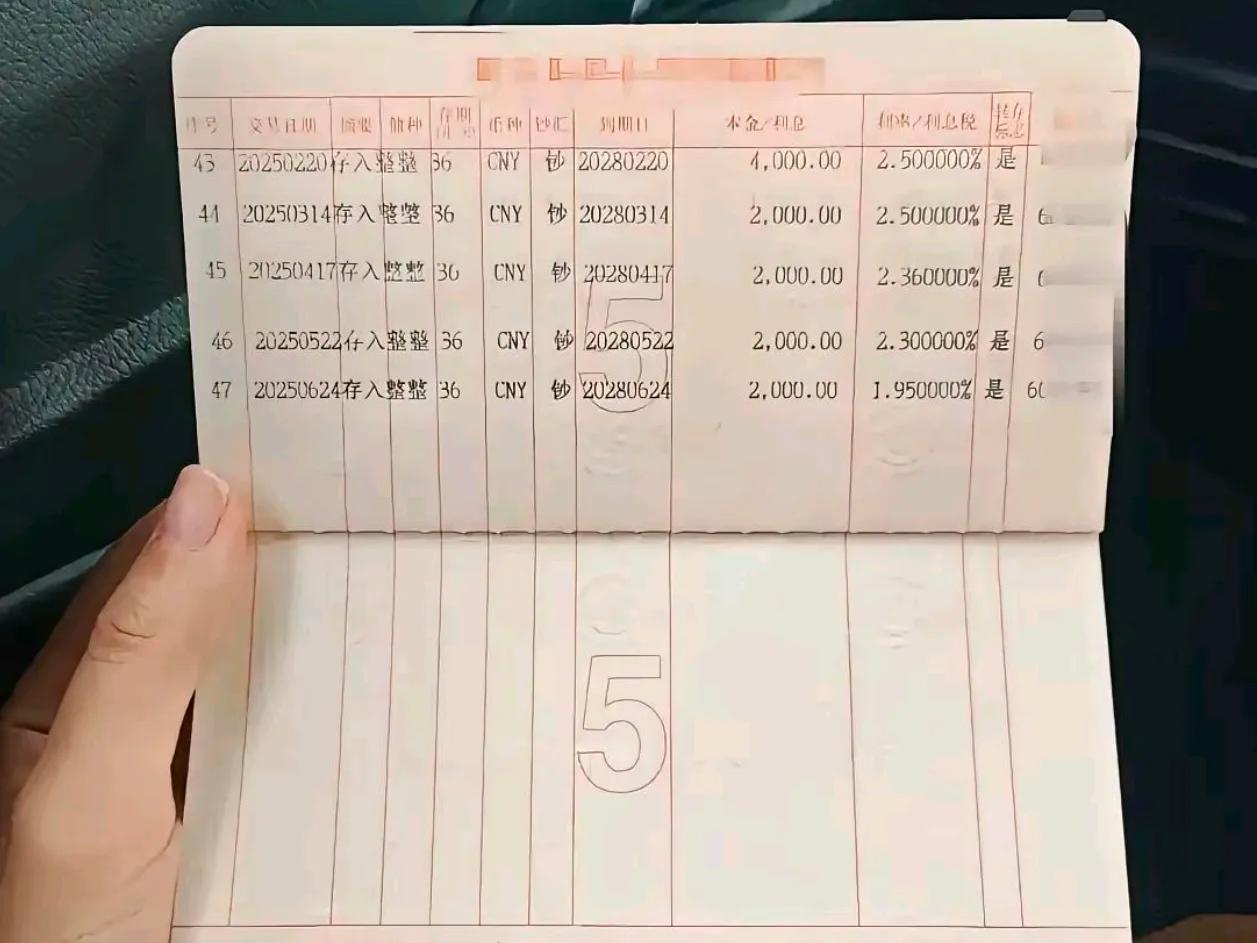 序号 交易日期 摘要 储种 存期 币种 钞汇 到期日 本金/利息 利率/利息税 转存标志
43 20250220 存入 整整 36 CNY 钞 20280220 4,000.00 2.500000% 是
44 20250314 存入 整整 36 CNY 钞 20280314 2,000.00 2.500000% 是 6
45 20250417 存入 整整 36 CNY 钞 20280417 2,000.00 2.360000% 是
46 20250522 存入 整整 36 CNY 钞 20280522 2,000.00 2.300000% 是 6
47 20250624 存入 整整 36 CNY 钞 20280624 2,000.00 1.950000% 是 60
5
5